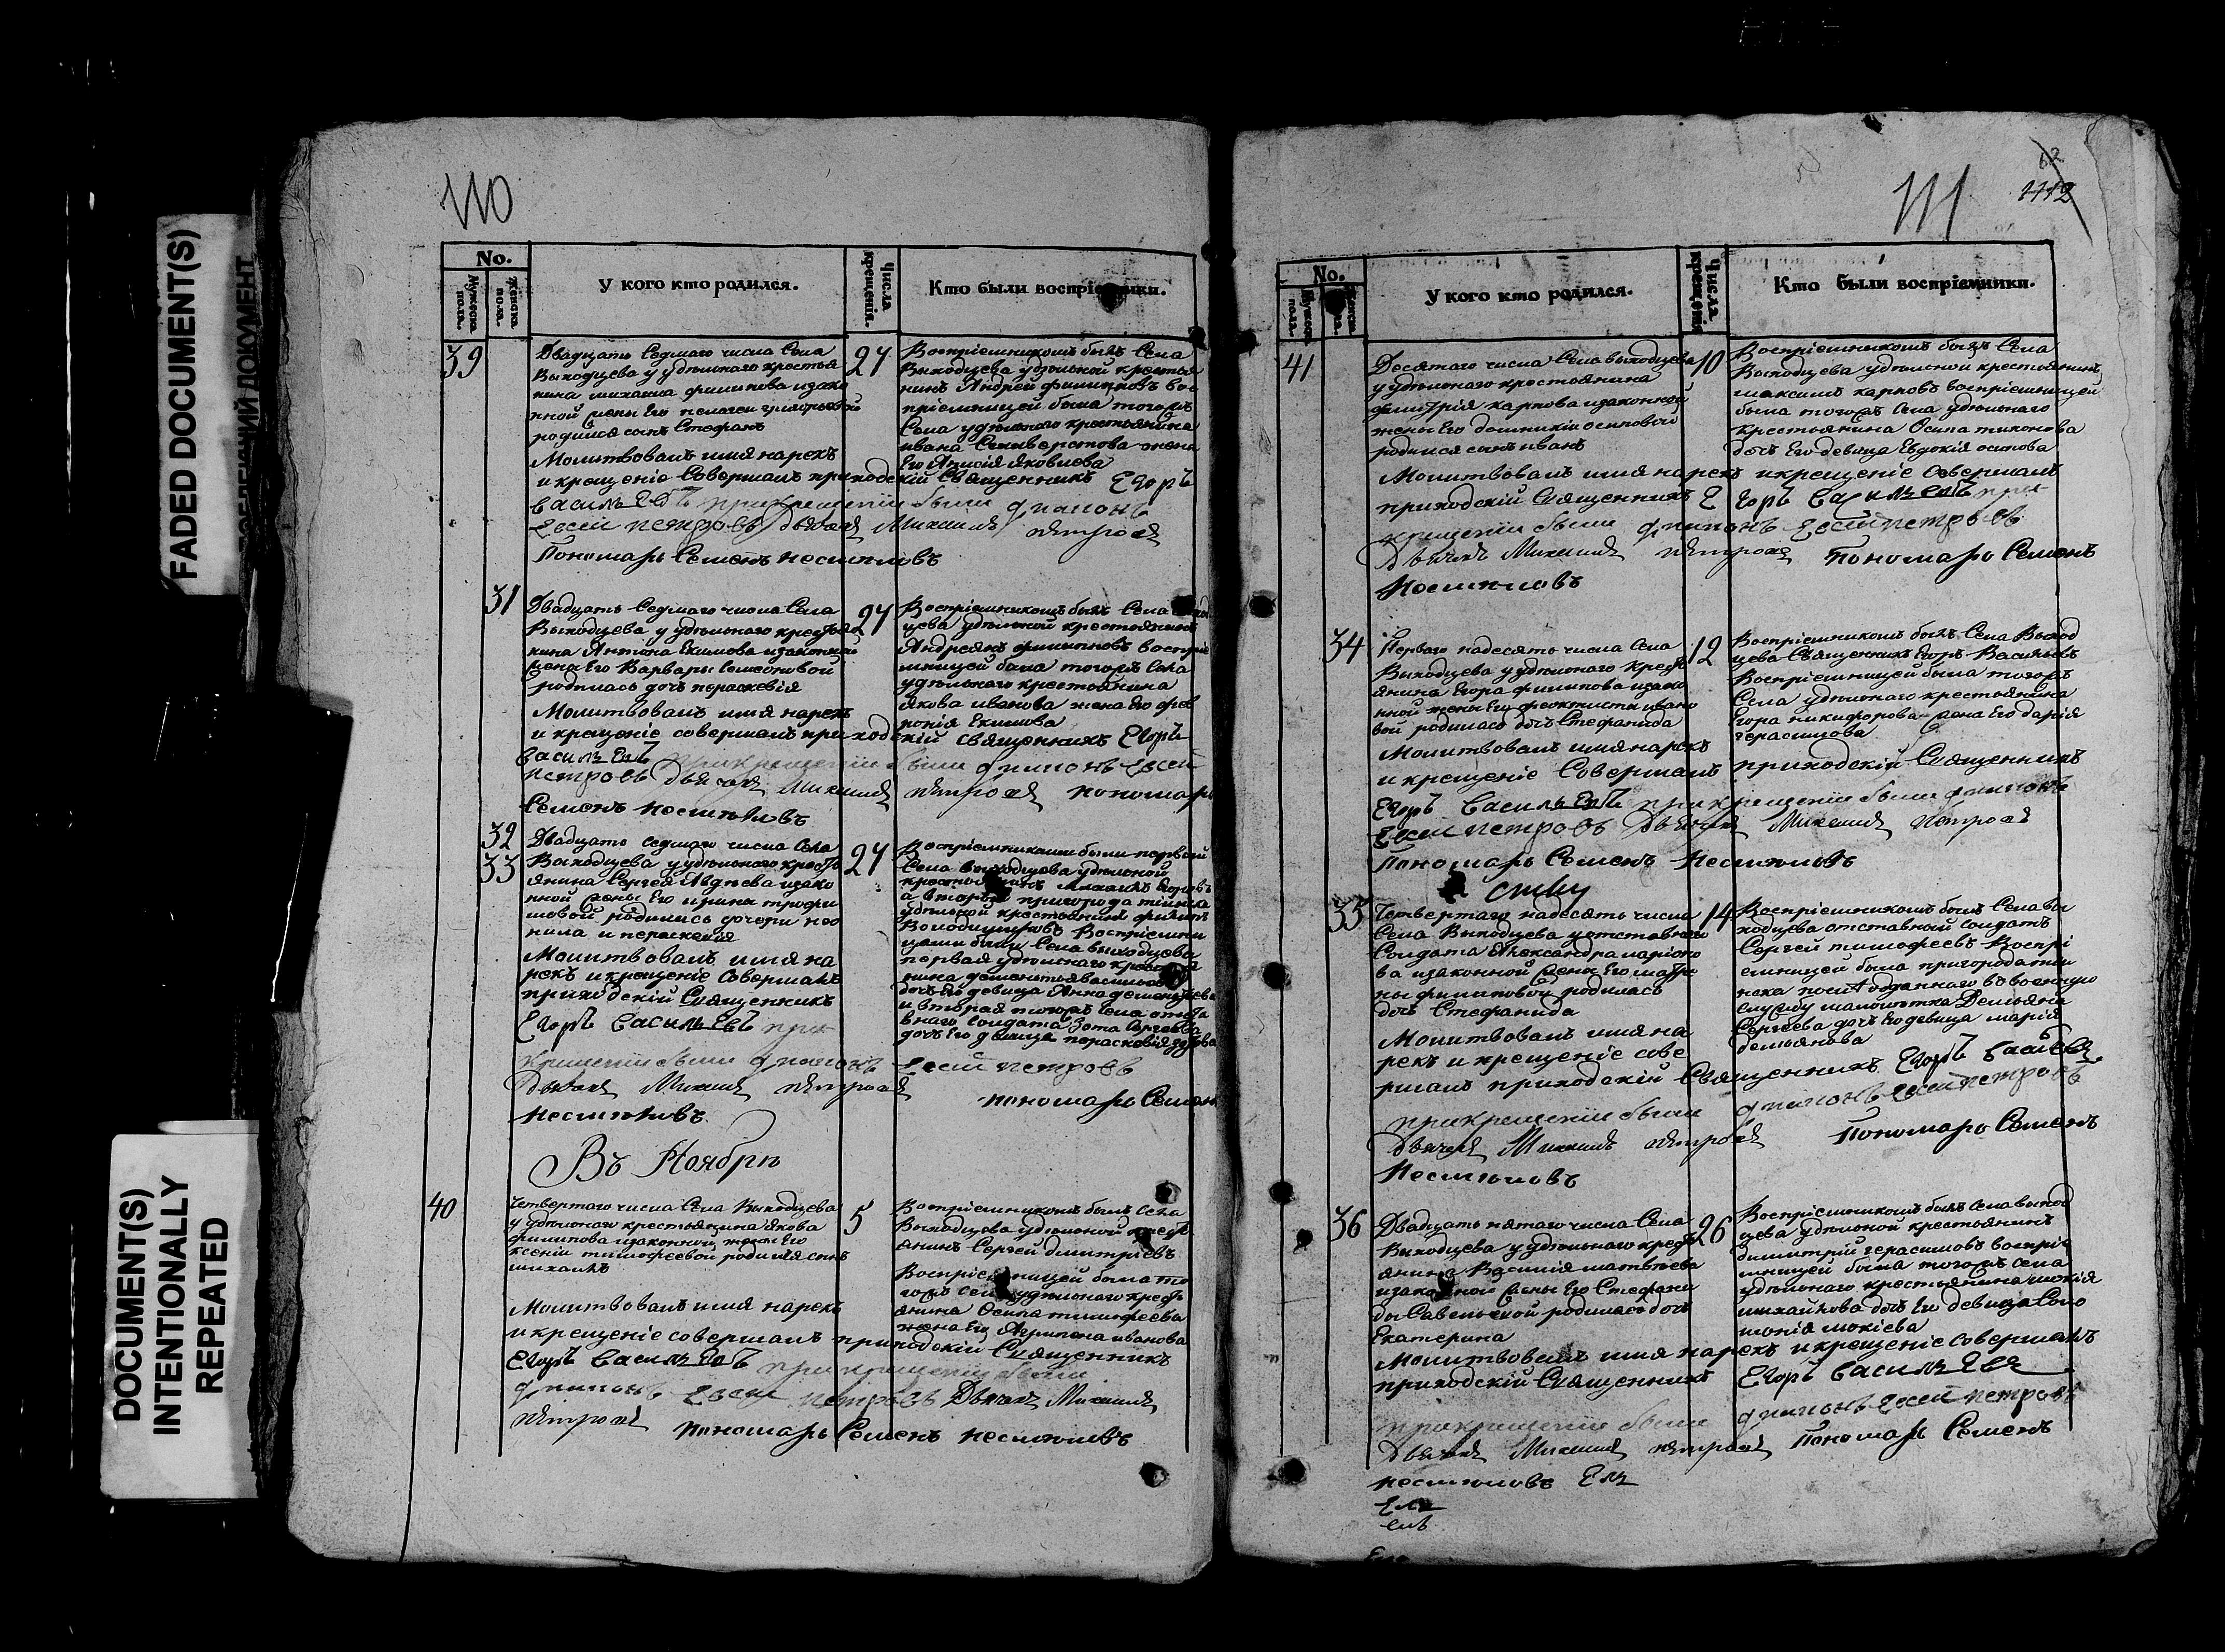 FADED DOCUMENT(S)
DOCUMENT(S)
INTENTIONALLY
REPEATED
110
No.
Мужеска пола.
Женска пола.
У кого кто родился.
Числа крещенія.
Кто были воспріемники.
39
Двадцать Седмаго числа Села
Выходцева у удѣльнаго крестья
нина михаила филипова изако
нной жены Его пелагеи григорьевой
родился сынъ Стефанъ
Молитвовалъ имя нарекъ
и крещеніе Совершалъ приходскій Священникъ Егоръ
Васильевъ при крещеніи были
Евсей петровъ Дьячекъ Михаилъ петровъ
Пономарь Семенъ
27
Воспріемникомъ былъ Села
Выходцева удѣльной крестья
нинъ Андрей филиповъ вос
пріемницей была тогожъ
Села удѣльнаго крестьянина
ивана Селиверстова жена
Его Анисія Яковлева
31
Двадцать Седмаго числа Села
Выходцева у удѣльнаго крестья
нина Антона Екимова изаконной
жены Его Варвары Семеоновой
родилась дочь параскевія
Молитвовалъ имя нарекъ
и крещеніе совершалъ приходскій священникъ Егоръ
Васильевъ при крещеніи были Евсей
петровъ Дьячекъ Михаилъ петровъ пономарь
Семенъ
27
Воспріемникомъ былъ Села
цева удѣльной крестьянинъ
Андреянъ филиповъ воспріе
мницей была тогожъ Села
удѣльнаго крестьянина
Якова иванова жена Его фев
ронія Екимова
32
33
Двадцать седмаго числа Села
Выходцева у удѣльнаго кресть
янина Сергея Авдѣева изако
нной жены Его ирины трофи
мовой родились дочери нео
нила и параскевія
Молитвовалъ имя на
рекъ и крещеніе Совершалъ
приходскій Священникъ
Егоръ Васильевъ при
крещеніи были Евсей петровъ
Дьячекъ Михаилъ петровъ
пономарь Семенъ
27
Воспріемниками были первой
Села Выходцева удѣльной
пригорода
удѣльной крестьянинъ филипъ
Воспріемни
цами были Села выходцева
первая удѣльнаго
дочь Его девица Анна дементьева
и вторая тогожъ Села отста
внаго Солдата Зота Сергеева
дочь Его девица парасковія зотова
Въ Ноябрѣ
40
Четвертаго числа Села Выходцева
у удѣльнаго крестьянина Якова
филипова изаконной жены Его
ксеніи тимофеевой родился сынъ
михаилъ
Молитвовалъ имя нарекъ
и крещеніе совершалъ приходскій Священникъ
Егоръ Васильевъ при крещеніи были
Евсей петровъ Дьячекъ Михаилъ
петровъ пономарь Семенъ
5
Воспріемникомъ былъ Села
Выходцева удѣльной кресть
янинъ Сергей димитріевъ
Воспріемницей была то
гожъ Села удѣльнаго кресть
янина Осипа тимофеева
жена Его Агрипена иванова
111
62
1112
No.
Мужеска пола.
Женска пола.
У кого кто родился.
Числа крещенія
Кто были воспріемники.
41
Десятаго числа Села выходцева
у удѣльнаго крестьянина
димитрія карпова изаконной
жены Его домникіи осиповой
родился сынъ иванъ
Молитвовалъ имя нарекъ и крещеніе Совершалъ
приходскій Священникъ Егоръ Васильевъ при
крещеніи были Евсей петровъ
Дьячекъ Михаилъ петровъ пономарь Семенъ
10
Воспріемникомъ былъ Села
Выходцева удѣльной крестьянинъ
максимъ карповъ воспріемницей
была тогожъ Села удѣльнаго
крестьянина Осипа тихонова
дочь Его девица Евдокія осипова
34
Перваго надесять числа Села
Выходцева у удѣльнаго кресть
янина Егора филипова изако
нной жены Его феоктисты ивано
вой родилась дочь Стефанида
Молитвовалъ имя нарекъ
и крещеніе Совершалъ приходскій Священникъ
Егоръ Васильевъ при крещеніи были
Евсей петровъ Дьячекъ Михаилъ петровъ
Пономарь Семенъ
12
Воспріемникомъ былъ Села Выход
цева Священникъ Егоръ Васильевъ
Воспріемницей была тогожъ
Села удѣльнаго крестьянина
Егора никифорова жена Его дарія
герасимова
35
Четвертаго надесять числа
Села Выходцева у отставнаго
Солдата Александра ларіоно
ва изаконной жены Его матре
ны филиповой родилась
дочь Стефанида
Молитвовалъ имя на
рекъ и крещеніе сове
ршалъ приходскій Священникъ Егоръ Васильевъ
при крещеніи были Евсей петровъ
Дьячекъ Михаилъ петровъ Пономарь Семенъ
14
Воспріемникомъ былъ Села вы
ходцева отставной Солдатъ
Сергей тимофеевъ Воспрі
емницей была пригорода тии
нска отданнаго в военную
службу Демьяна
Сергеева дочь Его девица марія
демьянова
36
Двадцать пятаго числа Села
Выходцева у удѣльнаго кресть
янина Василія матвѣева
изаконной жены Его Стефани
ды Савельевой родилась дочь
Екатерина
Молитвовалъ имя нарекъ и крещеніе Совершалъ
приходскій Священникъ Егоръ Васильевъ
при крещеніи были Евсей петровъ
Дьячекъ Михаилъ петровъ Пономарь Семенъ
26
Воспріемникомъ былъ Села выход
цева удѣльной крестьянинъ
димитрій герасимовъ воспріе
мницей была тогожъ села
удѣльнаго крестьянина мокія
михайлова дочь Его девица Соло
монія мокіева